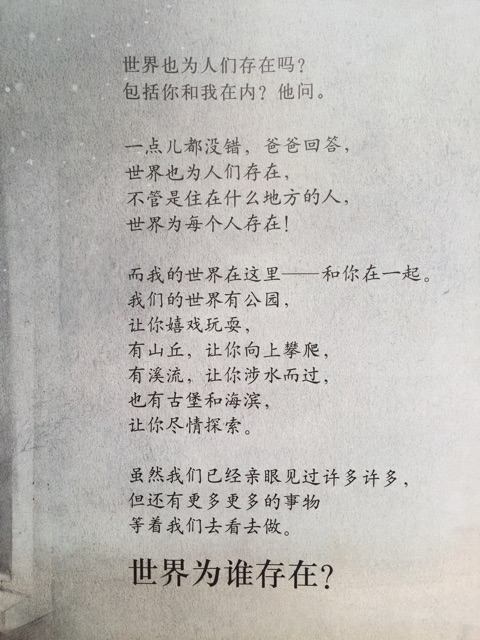 世界也为人们存在吗？
包括你和我在内？他问。
一点儿都没错，爸爸回答，
世界也为人们存在，
不管是住在什么地方的人，
世界为每个人存在！
而我的世界在这里——和你在一起。
我们的世界有公园，
让你嬉戏玩耍，
有山丘，让你向上攀爬，
有溪流，让你涉水而过，
也有古堡和海滨，
让你尽情探索。
虽然我们已经亲眼见过许多许多，
但还有更多更多的事物
等着我们去看去做。
世界为谁存在？